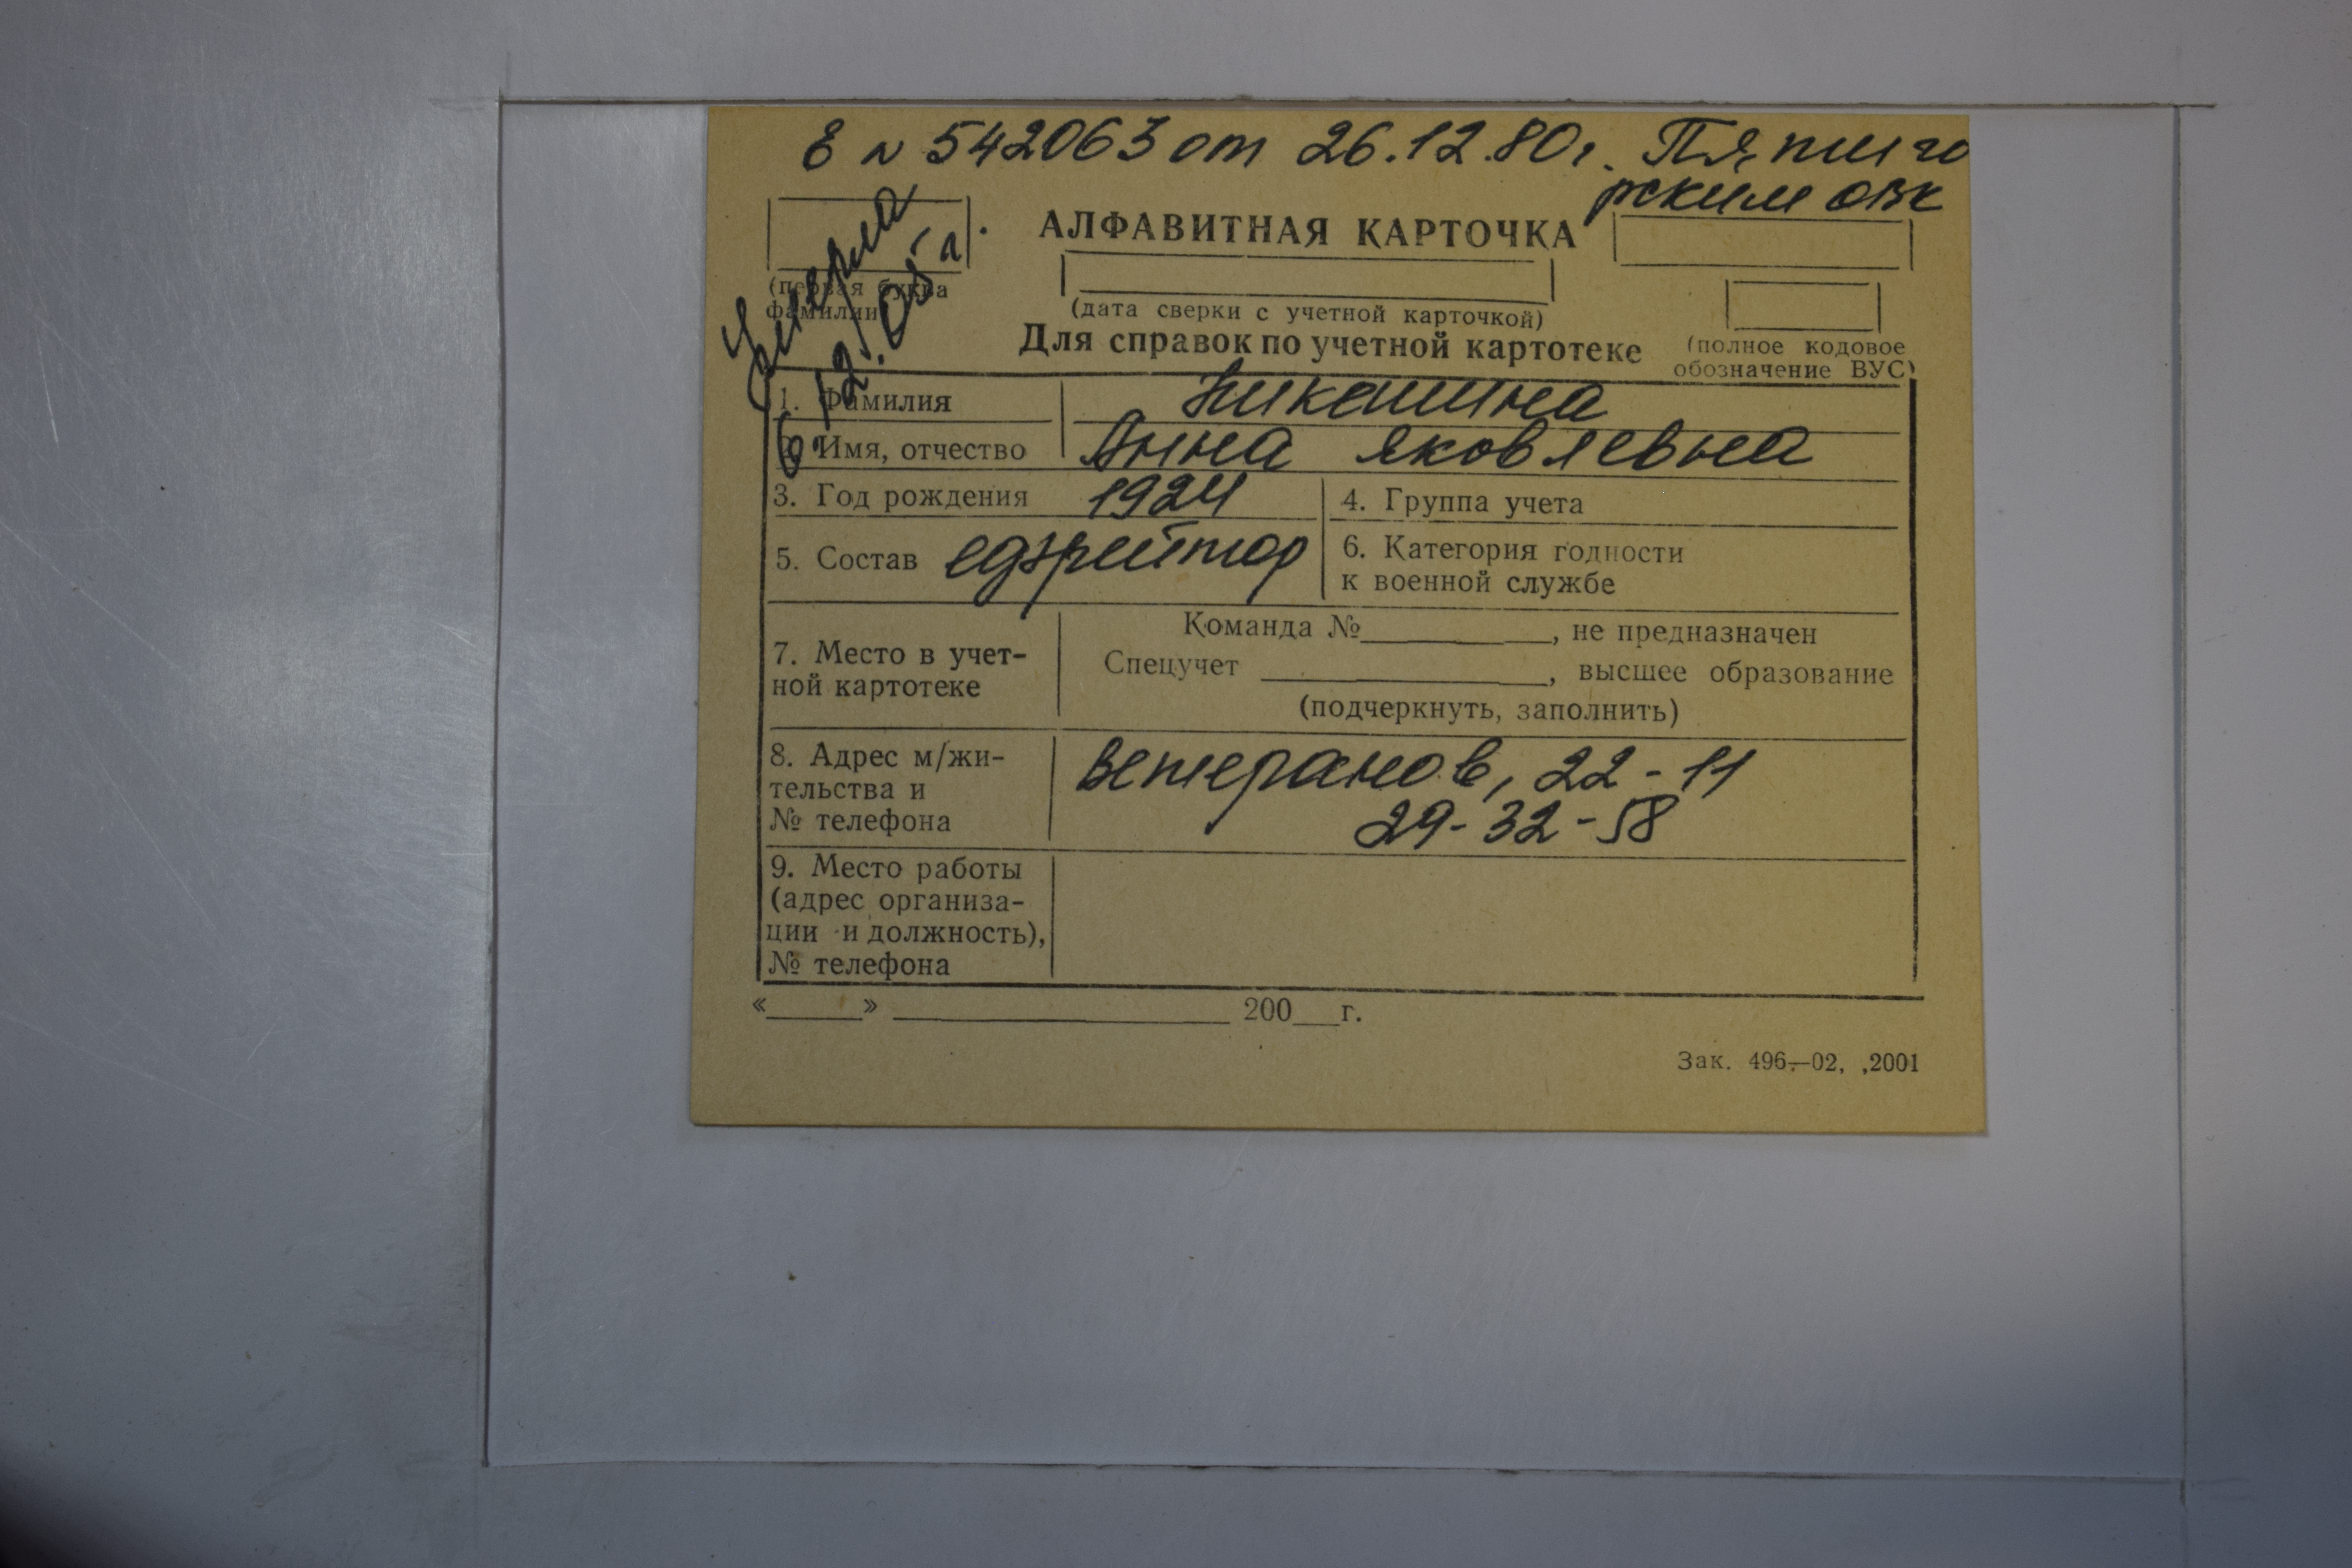 Е № 542063 от 26.12.80г. Пятиго
рским ОВК
умерла
6.12.05 г.
АЛФАВИТНАЯ КАРТОЧКА
(первая буква
фамилии)
(дата сверки с учетной карточкой)
Для справок по учетной картотеке
(полное кодовое
обозначение ВУС)
1. Фамилия Никашина
2. Имя, отчество Анна Яковлевна
3. Год рождения 1924
4. Группа учета
5. Состав ефрейтор
6. Категория годности
к военной службе
7. Место в учет-
ной картотеке
Команда №________, не предназначен
Спецучет ________, высшее образование
(подчеркнуть, заполнить)
8. Адрес м/жи-
тельства и
№ телефона
Ветеранов, 22-11
29-32-58
9. Место работы
(адрес организа-
ции и должность),
№ телефона
«____» ____________ 200__г.
Зак. 496—02, ,2001